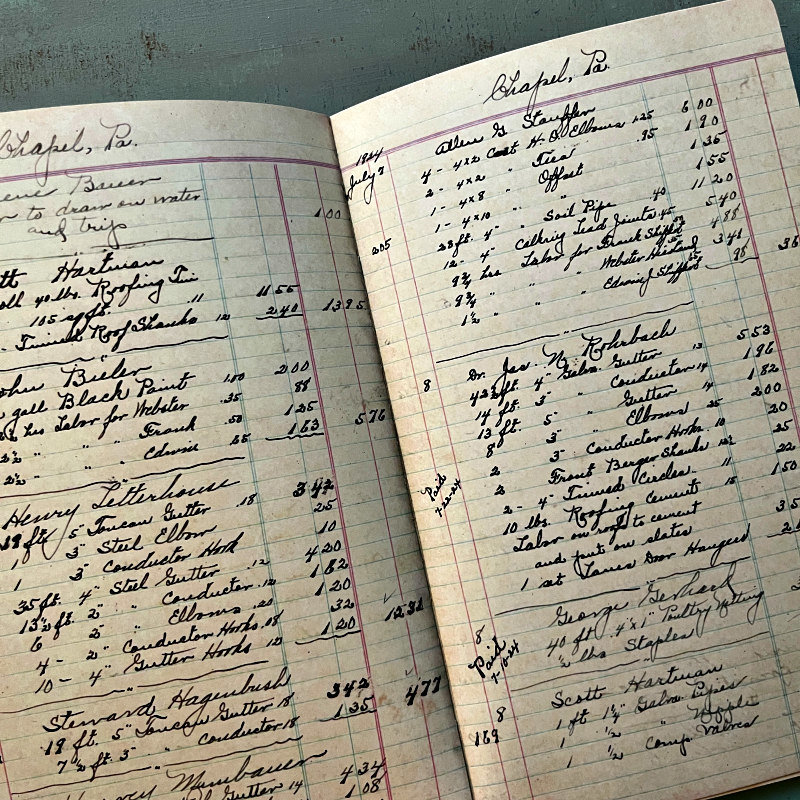 Chapel, Pa.
Bauer
to draw on water
and trip 1 00
Hartman
40 lbs. Roofing Tin
105 sq ft. .11 11 55
Tinned Roof Shanks 12 2 40 13 95
Bieler
gall Black Paint 1.00 2 00
hrs Labor for Webster .35 88
2½ " " " Frank .50 1 25
2½ " " " Edwin .65 1 63 5 76
Henry Letterhouse
19 ft. 5" Toncan Gutter .18 3 42
1 3" Steel Elbow 25
1 3" Conductor Hook 10
35 ft. 4" Steel Gutter .12 4 20
13½ ft. 2" " Conductor .12 1 62
6 2" " Elbows .20 1 20
4 - 2" Conductor Hooks 32
10 - 4" Gutter Hooks 12 1 20 12 31
Steward Hagenbush
19 ft. 5" Toncan Gutter 18 3 42
7½ ft. 3" " Conductor 18 1 35 4 77
Mumbauer
Gutter 14 4 34
1 08
Chapel, Pa.
1924
July 7
205
Allen G Stauffer
4 - 4x2 Cast H. O. Elbows 1.25 6 00
2 - 4x2 " Ties .95 1 90
1 - 4x8 " Offset 1 35
1 - 4x10 " " 1 55
28 ft. 4" " Soil Pipe 40 11 20
12 - 4" Calking Lead Joints .45 5 40
9¾ hrs Labor for Frank 4 88
9¾ " " " Webster 3 41
1½ " " " Edwin J 98
8 Dr. Jas. N. Rohrbach
ft. 4" Galva Gutter 13 5 53
14 ft. 3" " Conductor 14 1 96
13 ft. 5" " Gutter 14 1 82
8 3" " Elbows 25 2 00
2 3" Conductor Hooks 10 20
2 Front Berger Shanks 12½ 25
2 - 4" Tinned Circles 11 22
10 lbs. Roofing Cement 15 1 50
Labor on roof to cement
and put on slates
1 set Door Hangers
Paid
7-22-24
8 George Gerhard
40 ft. 4' x 1" Poultry Netting
½ lbs Staples
Paid
7-10-24
8 Scott Hartman
169
1 ft 1¼" Galva Pipes
1 ½ " Nipple
1 ½ Comp Valves